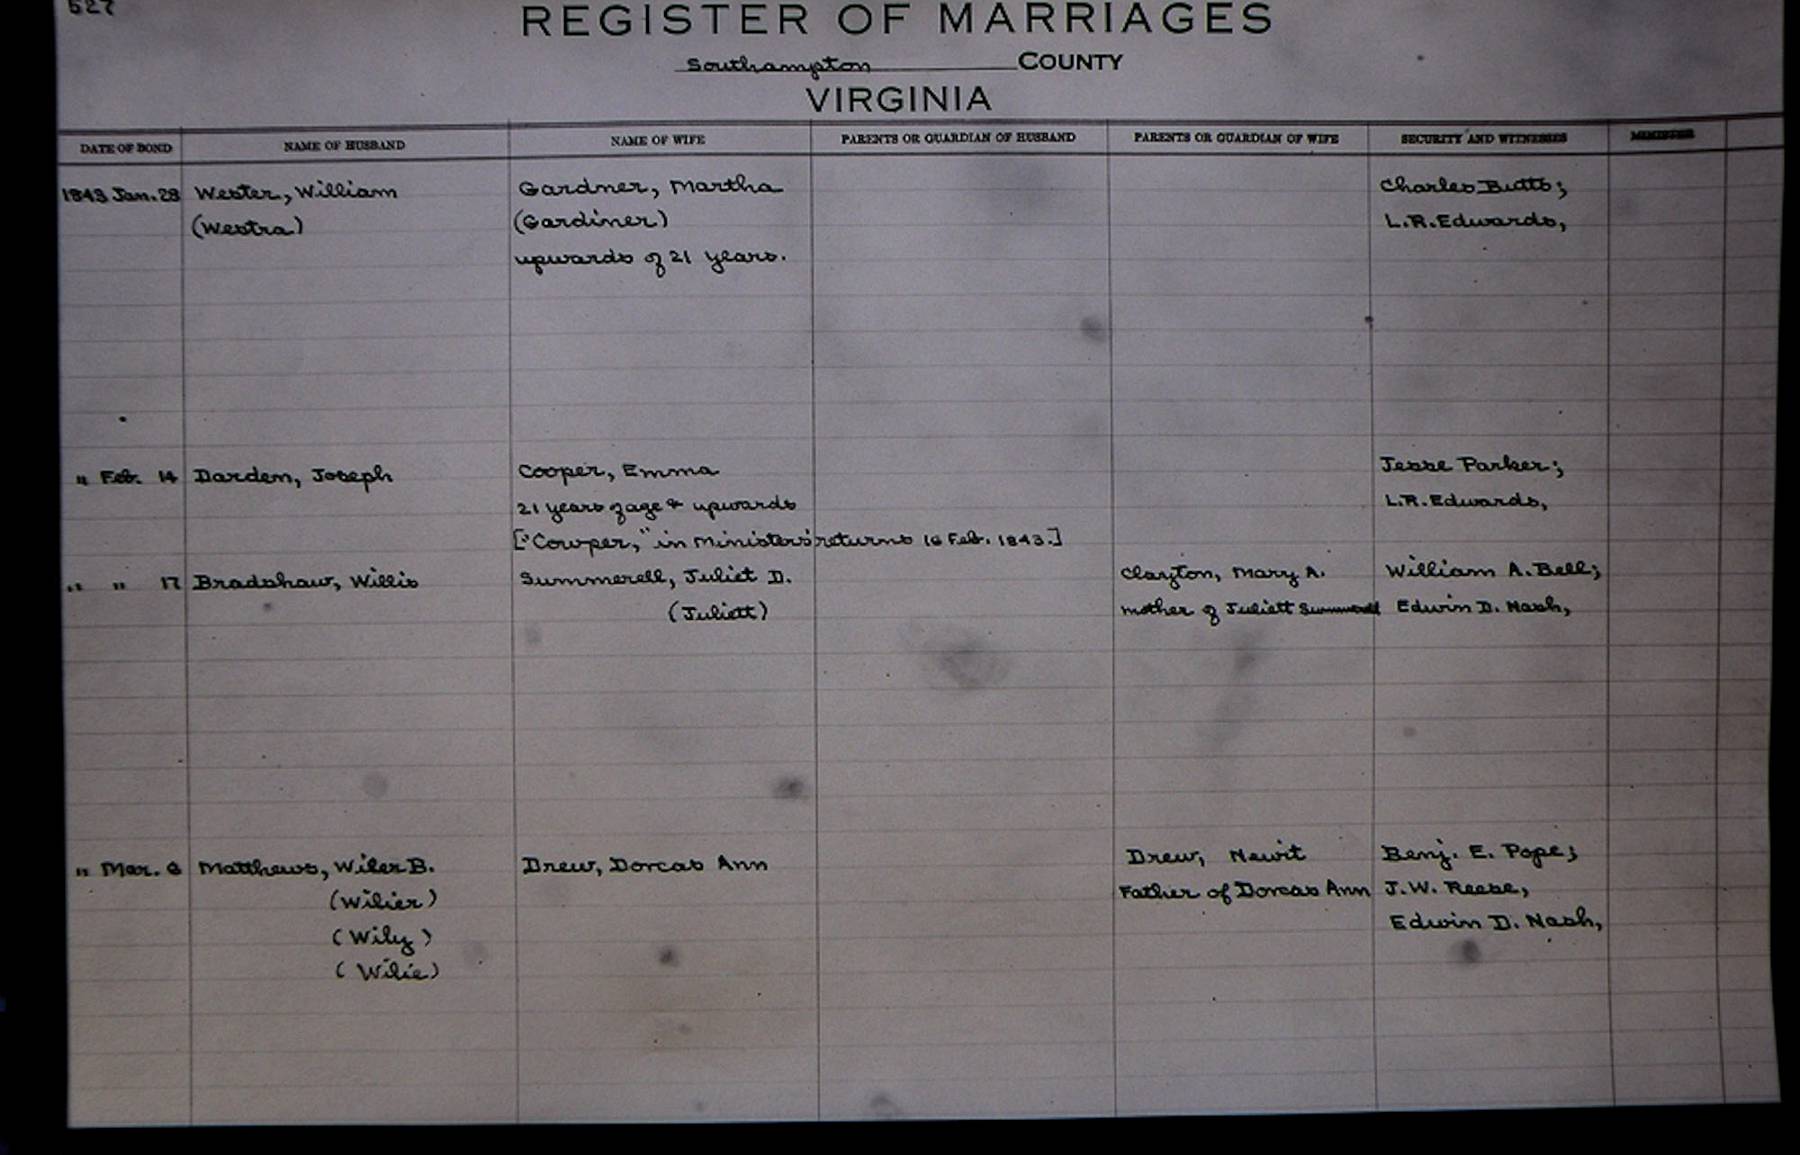 527
REGISTER OF MARRIAGES
Southampton COUNTY
VIRGINIA
DATE OF BOND NAME OF HUSBAND NAME OF WIFE PARENTS OR GUARDIAN OF HUSBAND PARENTS OR GUARDIAN OF WIFE SECURITY AND WITNESSES MINISTER
1843 Jan. 28 Wester, William Gardner, Martha Charles Butts;
(Westra) (Gardiner) L.R. Edwards,
upwards of 21 years.
" Feb. 14 Darden, Joseph Cooper, Emma Jesse Parker;
21 years of age & upwards L.R. Edwards,
["Cowper," in Ministers' returns 16 Feb. 1843.]
" " 17 Bradshaw, Willis Summerell, Juliet D. Clayton, Mary A. William A. Bell;
(Juliett) mother of Juliett Summerell Edwin D. Nash,
" Mar. 6 Matthews, Wiler B. Drew, Dorcas Ann Drew, Newit Benj. E. Pope;
(Wilier) Father of Dorcas Ann J.W. Reese,
(Wily) Edwin D. Nash,
(Wilie)